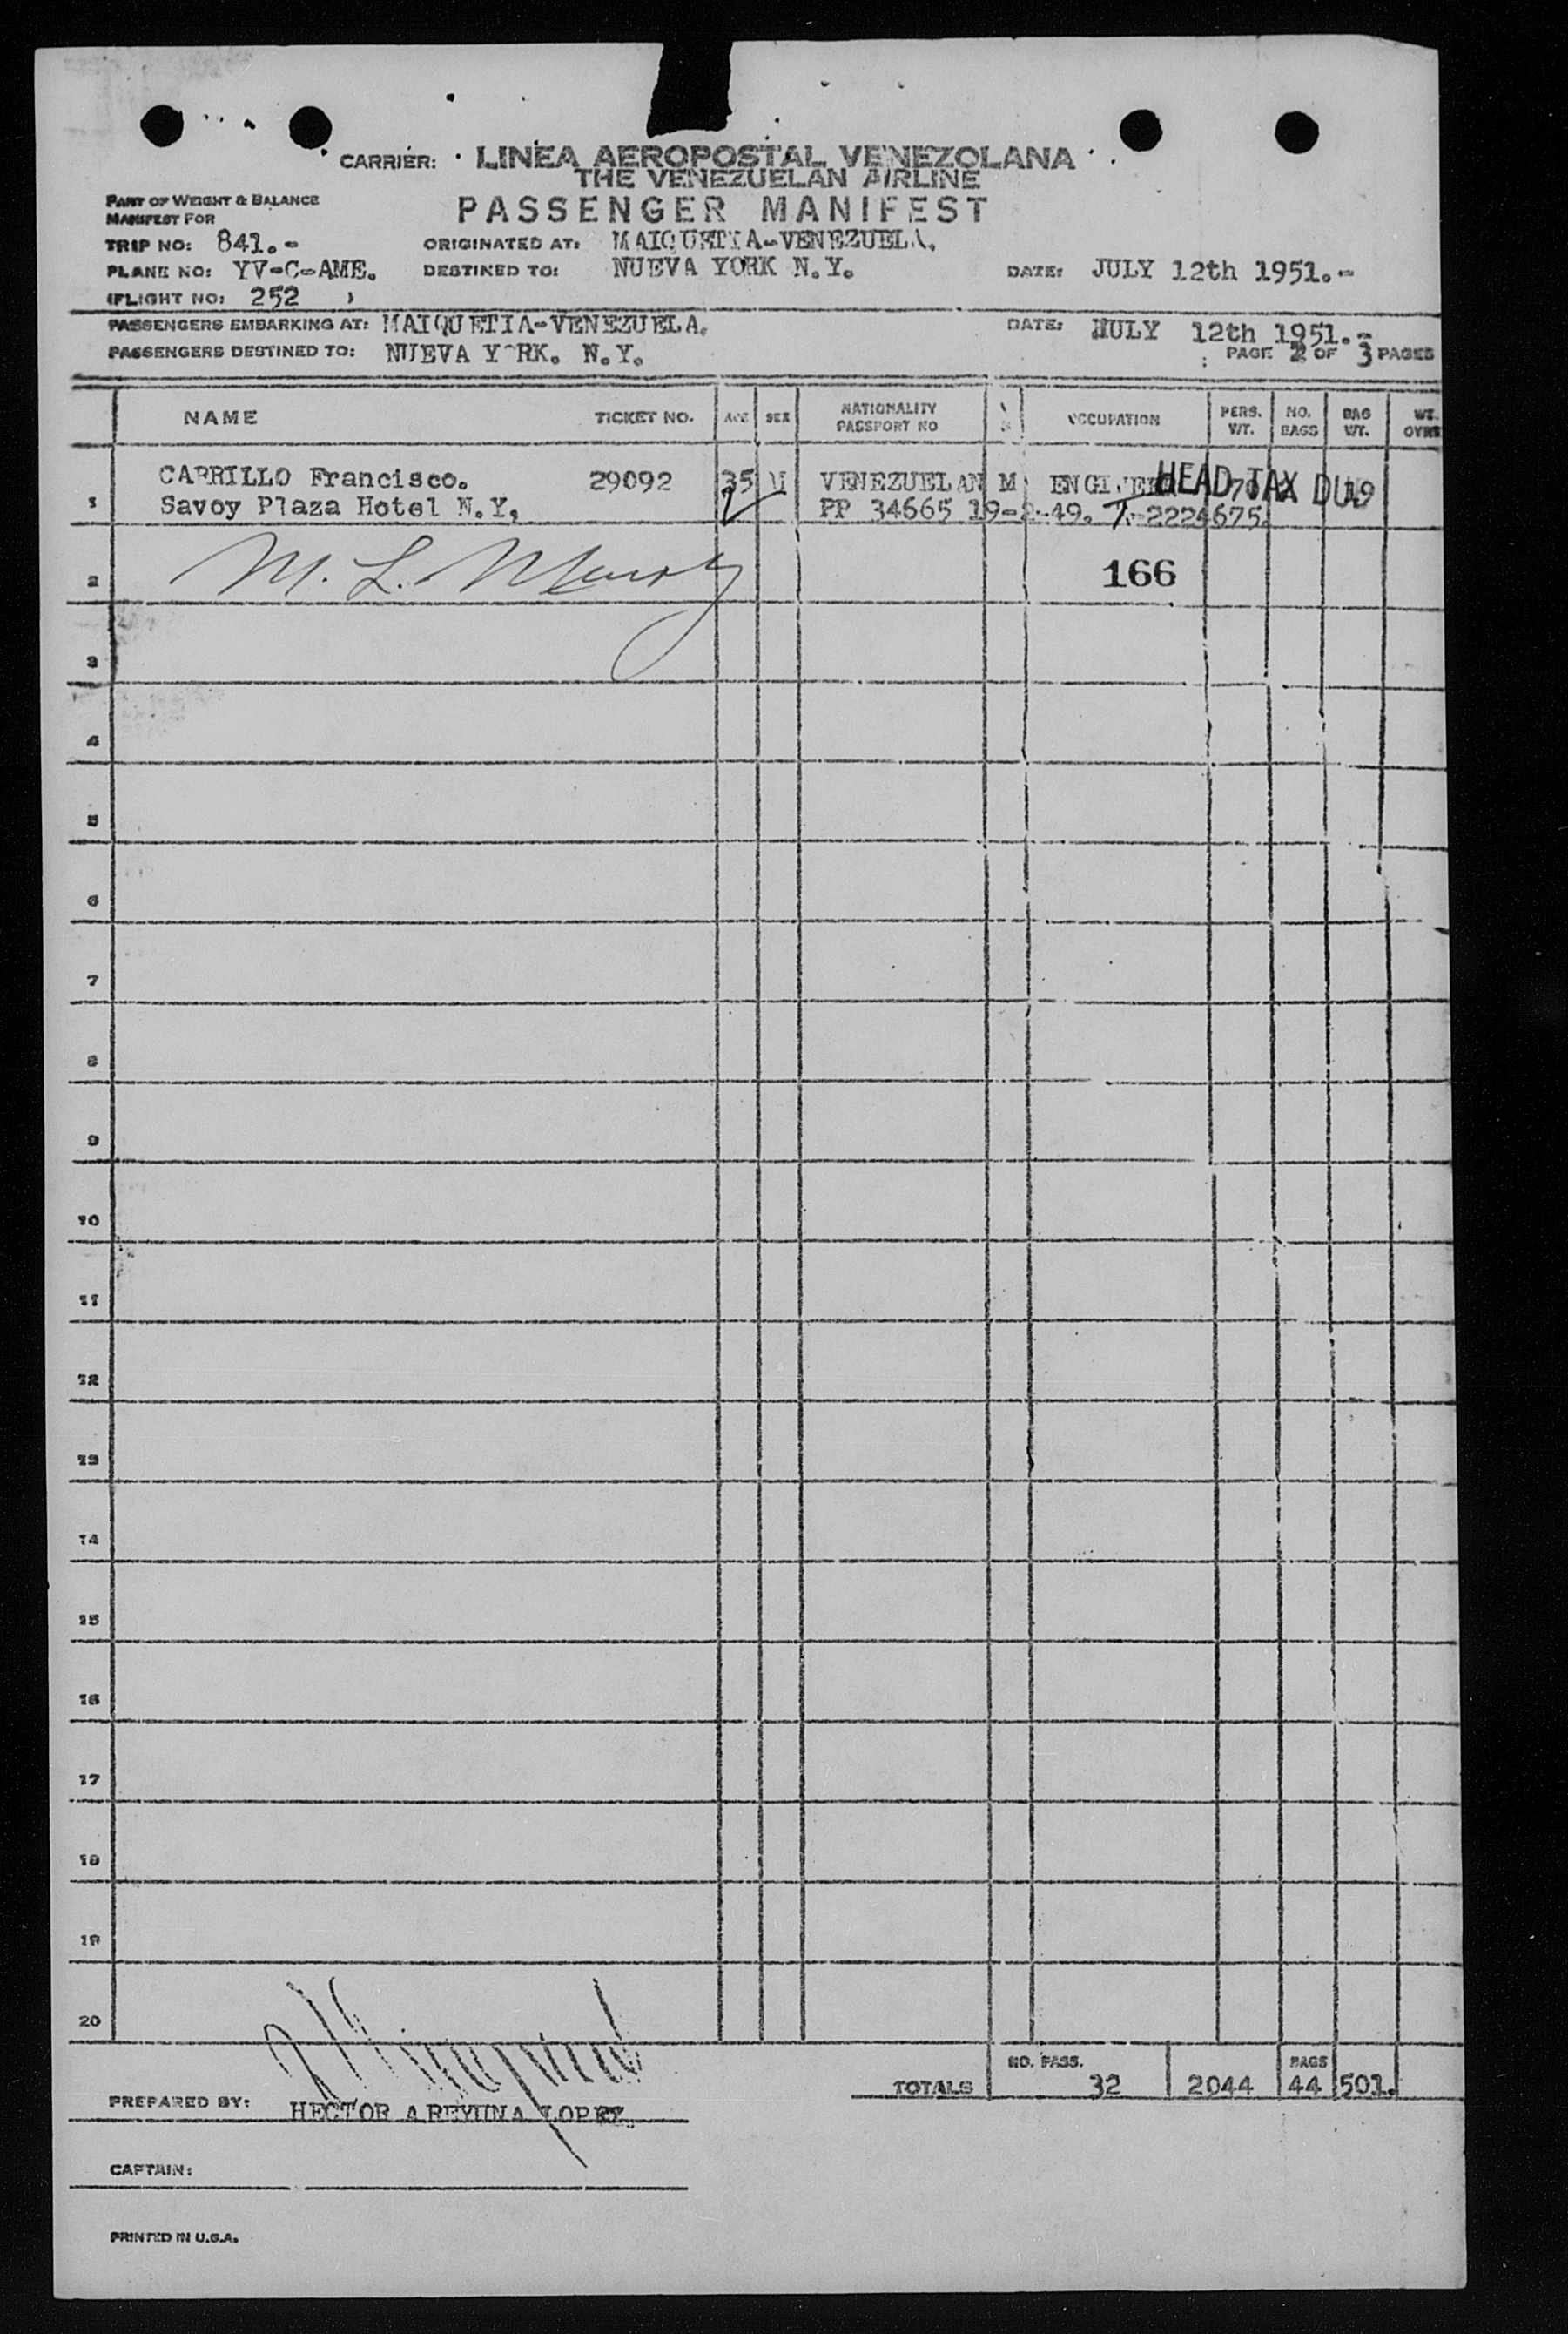 CARRIER: LINEA AEROPOSTAL VENEZOLANA
THE VENEZUELAN AIRLINE
PART OF WEIGHT & BALANCE
MANIFEST FOR
PASSENGER MANIFEST
TRIP NO: 841.- ORIGINATED AT: MAIQUETIA-VENEZUELA.
PLANE NO: YV-C-AME. DESTINED TO: NUEVA YORK N.Y. DATE: JULY 12th 1951.-
(FLIGHT NO: 252 )
PASSENGERS EMBARKING AT: MAIQUETIA-VENEZUELA. DATE: HULY 12th 1951.-
PASSENGERS DESTINED TO: NUEVA Y^RK. N.Y. PAGE 2 OF 3 PAGES
NAME TICKET NO. AGE SEX NATIONALITY PASSPORT NO OCCUPATION PERS. WT. NO. BAGS BAG WT. WT. OVRS
1 CARRILLO Francisco. 29092 35 M VENEZUELAN M ENGINEER HEAD TAX DUE
Savoy Plaza Hotel N.Y, PP 34665 19-2-49. T-2224675.
2 M. L. 166
3
4
5
6
7
8
9
10
11
12
13
14
15
16
17
18
19
20
NO. PASS. BAGS
TOTALS 32 2044 44 501.
PREPARED BY: HECTOR AREYUNA LOPEZ.
CAPTAIN:
PRINTED IN U.S.A.